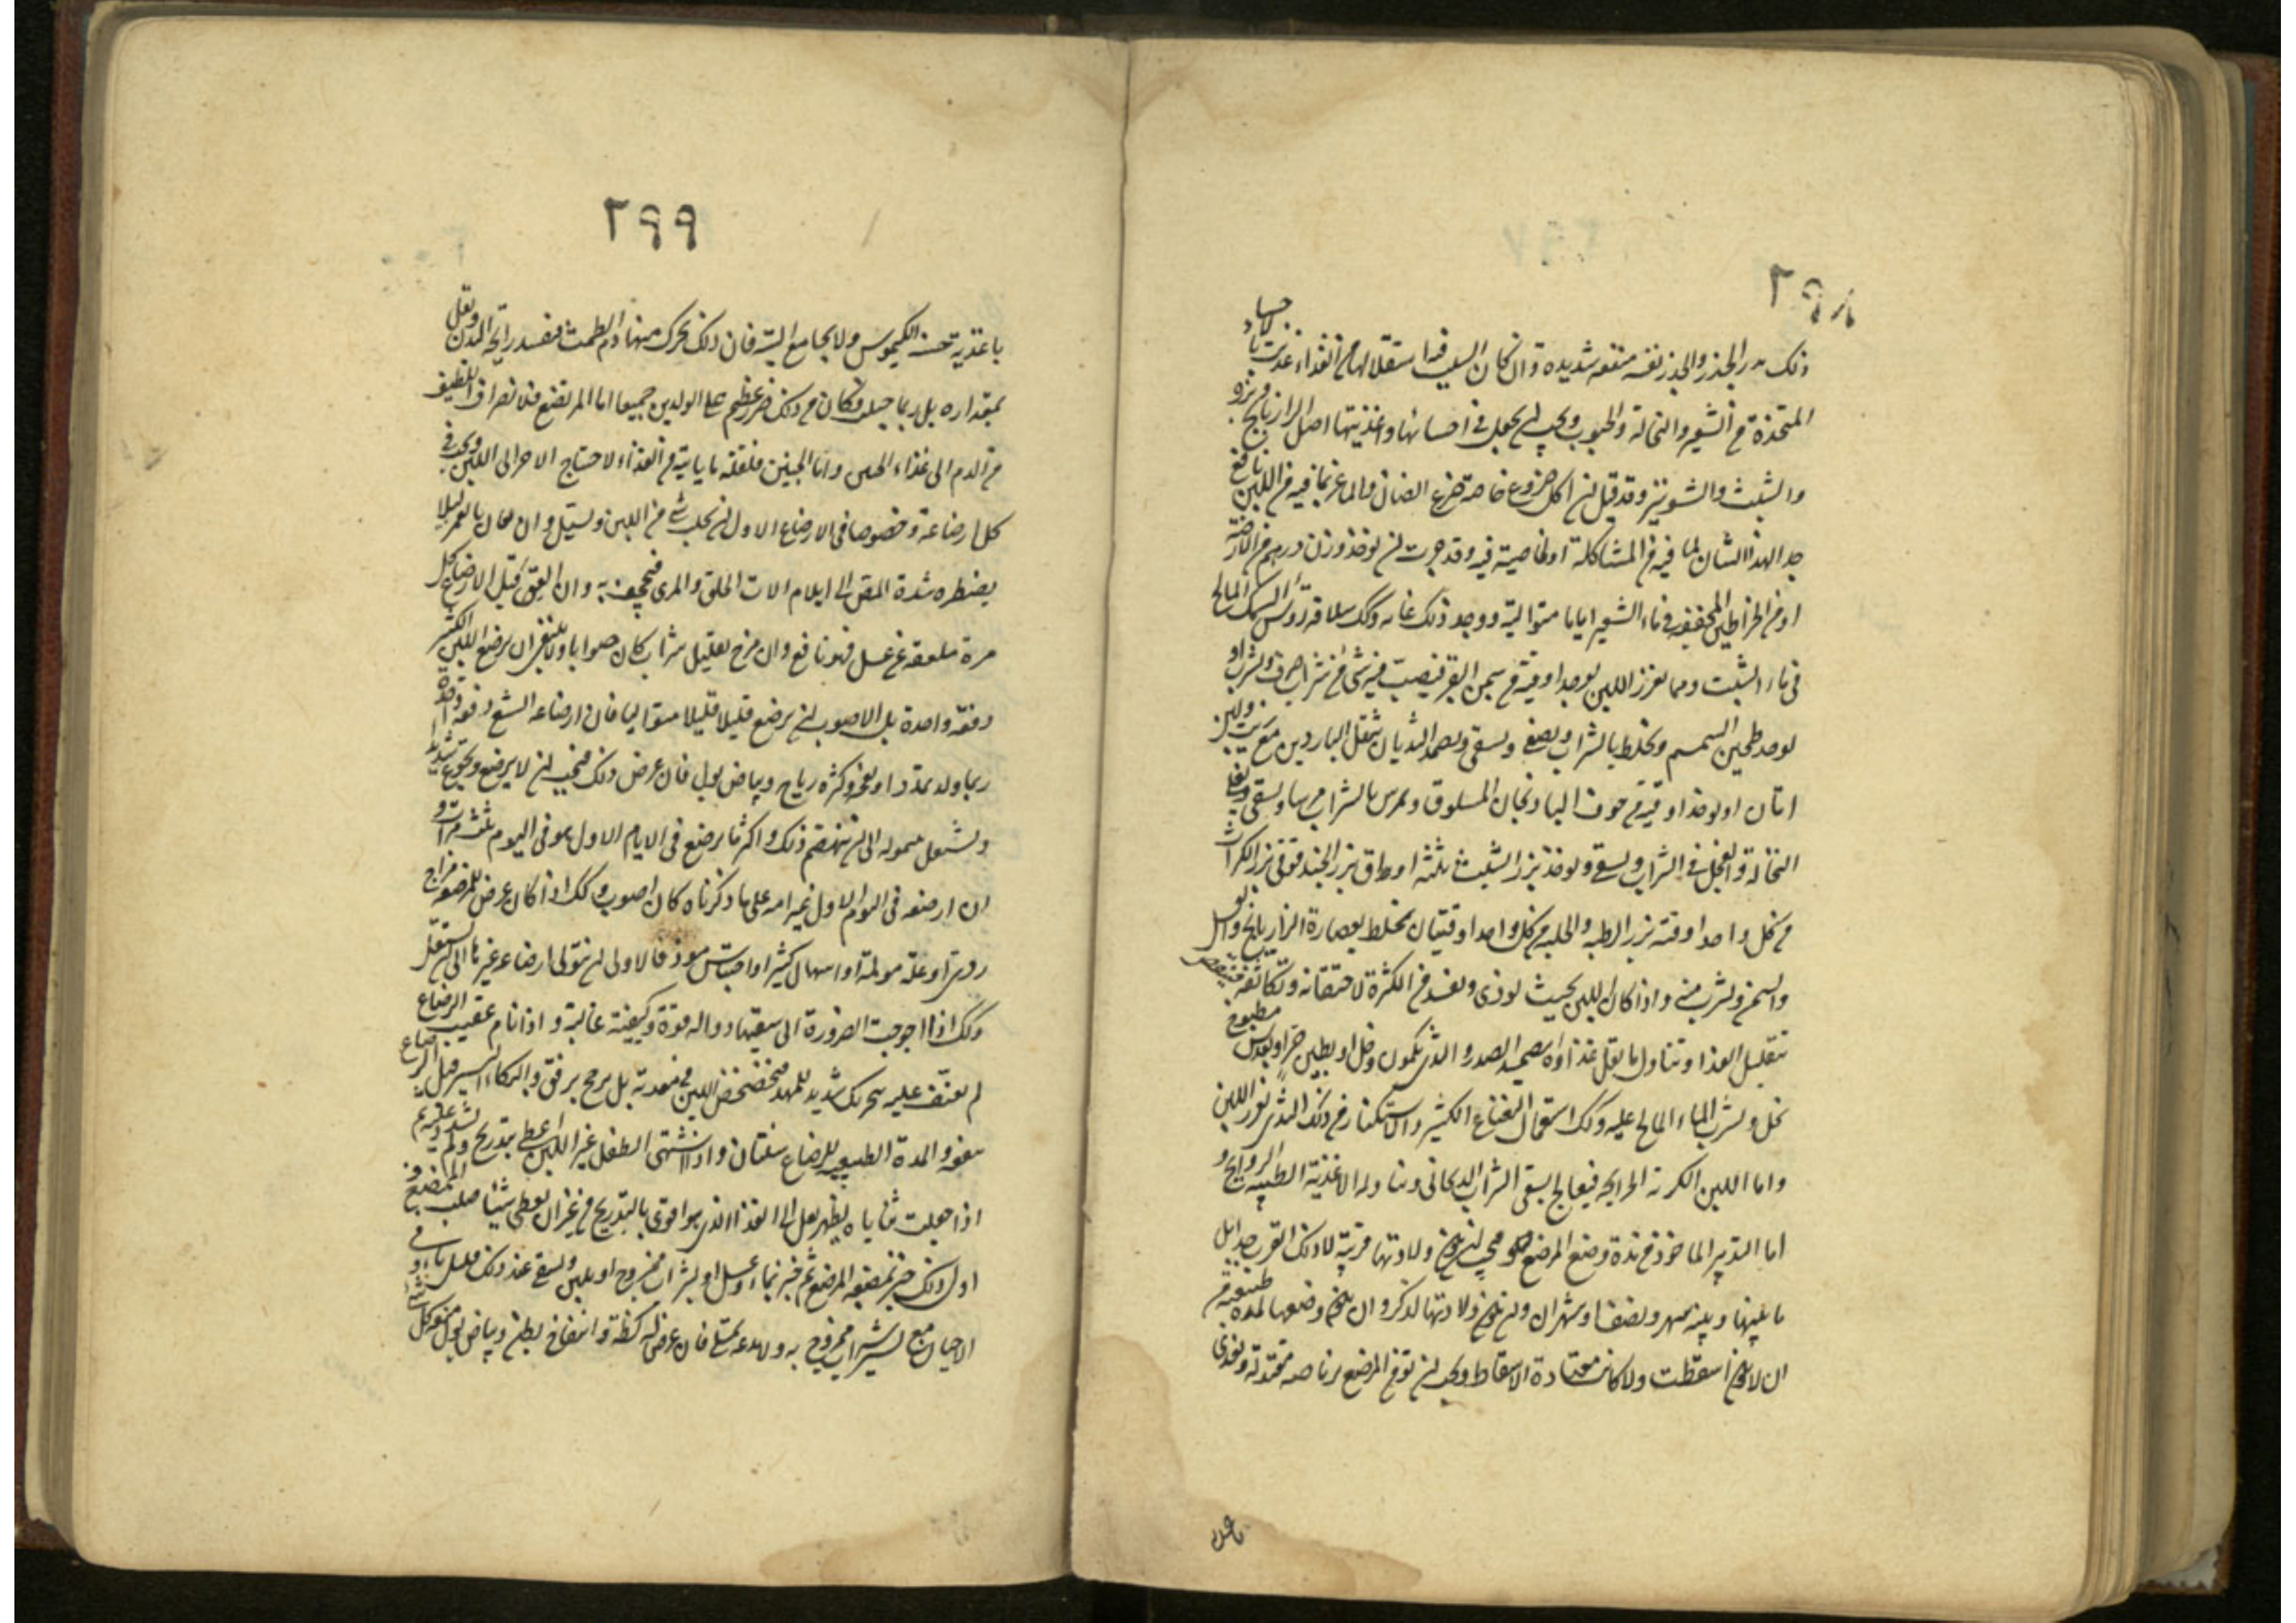 ٢٩٨
ذلك بزر الجزر والجزر نفسه منفعه شديدة وان كان السبب فيه استقلالها من الغذاء غذيت بالاحساء
المتخذة من الشعير والنخالة والحبوب ويجب ان يجعل في احسائها واغذيتها اصل الرازيانج وبزره
والشبث والشونيز وقد قيل ان اكل ضروع خاصة ضرع الضان والماعز بما فيه من اللبن نافع
جدا لهذا الشان لما فيه من المشاكلة او لخاصية فيه وقد جربت ان يوخذ وزن درهم من الارضة
او من الخراطين المجففه في ماء الشعير اياما متوالية ووجد ذلك غاية وكذلك سلاقة رؤس السمك المالح
في ماء الشبت ومما يغزر اللبن يوخذ اوقية من سمن البقر فيصب فيه شئ من شراب صرف ويشرب او
يوخذ طحين السمسم ويخلط بالشراب ويصفى ويسقى ويضمد الثديان بثقل الناردين مع زيت ولبن
اتان او يوخذ اوقية من جوف الباذنجان المسلوق ويمرس بالشراب مرسا ويسقى ويغلى
النخالة والفجل في الشراب ويسقى ويوخذ بزر الشبث ثلثة اواق بزر الحندقوقى بزر الكراث
من كل واحد اوقية بزر الرطبه والحلبه من كل واحد اوقيتان يخلط بعصارة الرازيانج والعسل
والسمن ويشرب منه واذا كان اللبن بحيث يوذى ويفسد من الكثرة لاحتقانه وتكاثفه فينقص
بتقليل الغذا وتناول ما يقل غذاؤه وبتضميد الصدر والثدى بكمون وخل او بطين حر او بعدس مطبوخ
بخل ويشرب الماء المالح عليه وكذلك استعمال النعناع الكثير والاستكثار من دلك الثدى يغزر اللبن
واما اللبن الكريه الرايحه فيعالج بسقى الشراب الريحانى وتناول الاغذية الطيبه الروايح و
اما التدبير الماخوذ من مدة وضع المرضع فيجب ان يكون ولادتها قريبة لا ذلك القرب جدا بل
ما بينها وبينه شهر ونصف او شهران وان يكون ولادتها لذكر وان يكون وضعها لمدة طبيعية
ان لا يكون اسقطت ولا كانت معتادة الاسقاط ويجب ان تومر المرضع برياضه معتدلة وتغذى
٢٩٩
باغذية حسنة الكيموس ولا يجامع البتة فان ذلك يحرك منها دم الطمث فيفسد رايحة اللبن ويقل
بمقداره بل ربما حبلت وكان من ذلك ضرر عظيم على الولدين جميعا اما المرتضع فلانصراف اللطيف
من الدم الى غذاء الجنين واما الجنين فلقلة ما ياتيه من الغذاء لاحتياج الاخر الى اللبن ويجب في
كل ارضاعة وخصوصا في الارضاع الاول ان يحلب شئ من اللبن ويسيل وان يعان بالغمز ليلا
يضطره شدة المص الى ايلام الات الحلق والمرى فيجحف به وان العق قبل الارضاع كل
مرة ملعقة من عسل فهو نافع وان مزج بقليل شراب كان صوابا ولا ينبغى ان يرضع اللبن الكثير
دفعة واحدة بل الاصوب ان يرضع قليلا قليلا متواليا فان في ارضاعه الشبع دفعة واحدة
ربما ولد تمددا ونفخه وكثرة رياح وبياض بول فان عرض ذلك فيجب ان لا يرضع ويجوع شديدا
ويشتغل بنومه الى ان ينهضم ذلك واكثر ما يرضع في الايام الاول هو في اليوم ثلث مرات و
ان ارضعه في اليوم الاول غير امه على ما ذكرناه كان اصوب وكذلك اذا كان عرض للمرضعة مزاج
ردى او علة مولمة او اسهال كثير او احتباس موذ فالاولى ان يتولى ارضاعه غيرها الى ان يستقل
وكذلك اذا احوجت الضرورة الى سقيها دوا له قوة وكيفية غالبة واذا نام عقيب الرضاع
لم يعنف عليه بتحريك شديد للمهد فيخضخض اللبن في معدته بل يرجح برفق والبكاء اليسير قبل الرضاع
ينفعه والمدة الطبيعيه للرضاع سنتان واذا اشتهى الطفل غير اللبن اعطى بتدريج ولم يشدد عليه ثم
اذا جعلت ثناياه يظهر نقل الى الغذا الذى هو اقوى بالتدريج من غير ان يعطى شيئا صلب الممضغ و
اول ذلك خبز تمضغه المرضع ثم خبز بماء وعسل او بشراب ممزوج او بلبن ويسقى عند ذلك قليل ماء وفي
الاحيان مع يسير شراب ممزوج به ولا يدعه يمتلى فان عرض له كظة وانتفاخ بطن وبياض بول منعته كل شئ